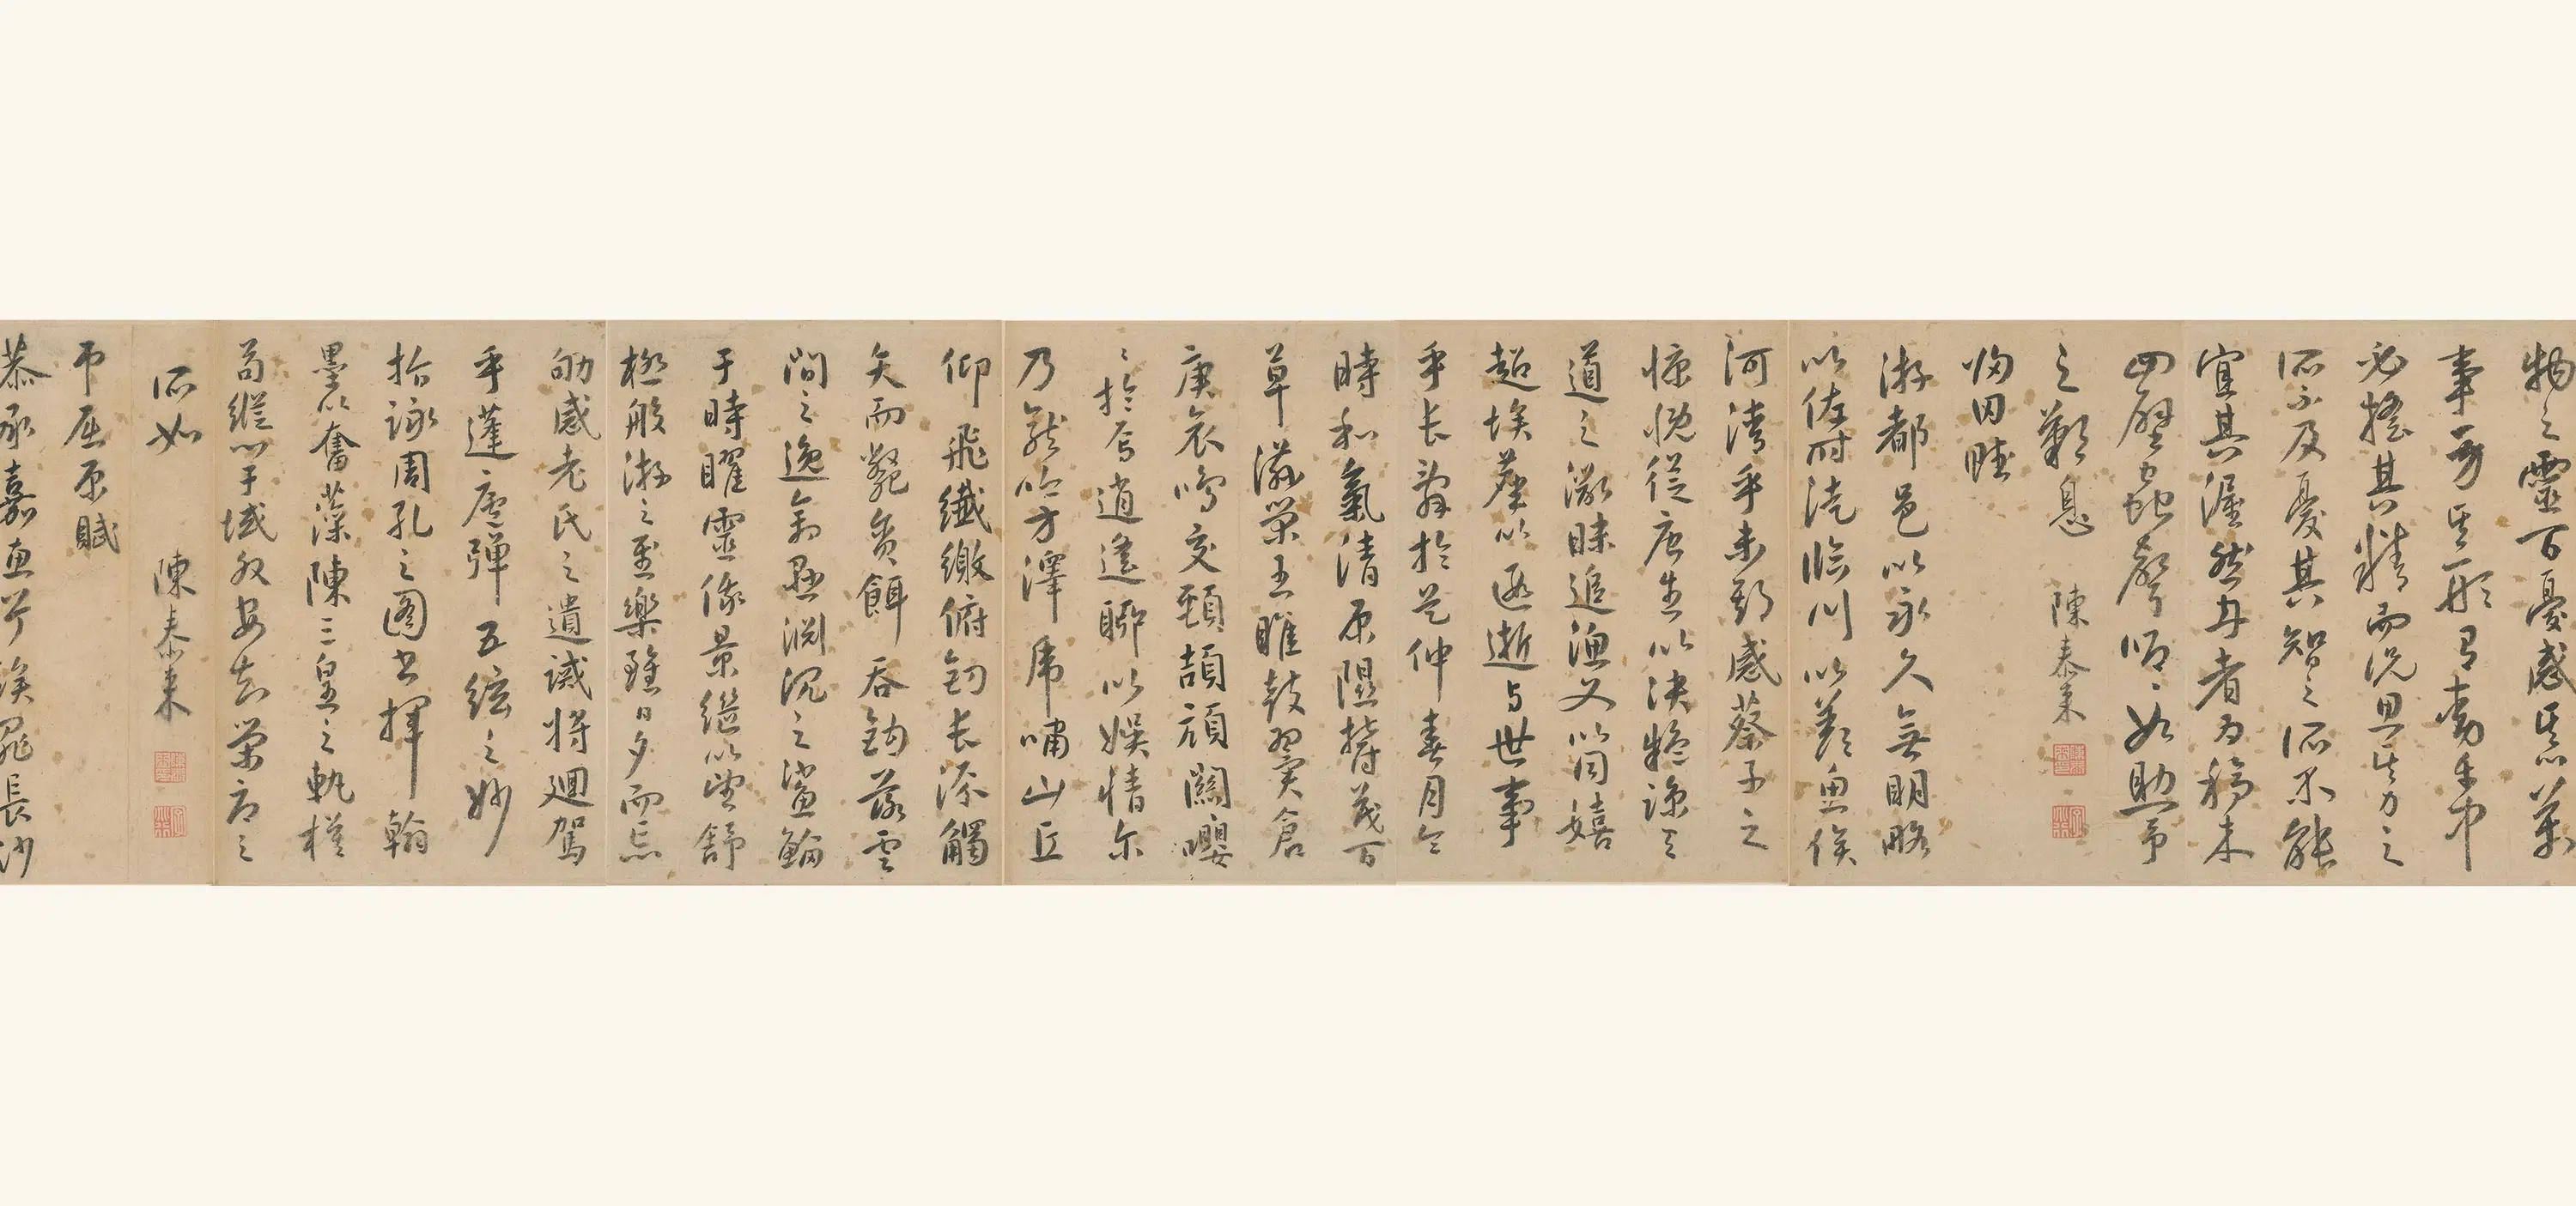 物之靈百憂感其心萬
事勞其形有動乎中
必搖其精而況思其力之
所不及憂其智之所不能
宜其渥然丹者為稿木
四壁蟲聲唧唧如助予
之歎息 陳泰來
歸田賦
游都邑以永久無明略
以佐時徒臨川以羨魚俟
河清乎未期感蔡子之
慷慨從唐生以決疑諒天
道之微昧追漁父以同嬉
超埃塵以遐逝与世事
乎長辭於是仲春月令
時和氣清原隰鬱茂百
草滋榮王雎鼓翼倉
庚哀鳴交頸頡頏關嚶
々於焉逍遙聊以娛情尔
乃龍吟方澤虎嘯山丘
仰飛纖繳俯釣長流觸
矢而斃貪餌吞鉤落雲
間之逸禽懸淵沉之鯊
于時曜靈俄景繼以望舒
極般游之至樂雖日夕而忘
劬感老氏之遺誡將廻駕
乎蓬廬彈五弦之妙
指詠周孔之圖書揮翰
墨以奮藻陳三皇之軌模
苟縱心于域外安知榮辱之
所如 陳泰來
弔屈原賦
恭承嘉惠兮俟罪長沙